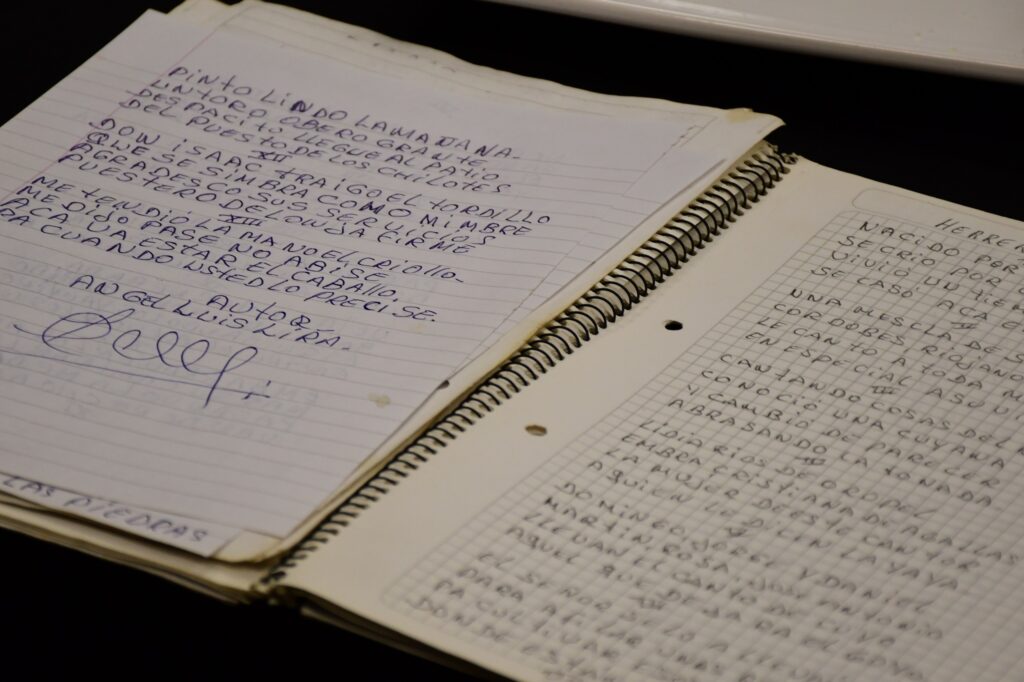 PINTO LINDO LA MAÑANA-
UN TORO OBERO GRANTE
DESPACITO LLEGUE AL PATIO
DEL PUESTO DE LOS CHILOTES
XII
DON ISAAC TRAIGO EL TORDILLO
QUE SE SIMBRA COMO MIMBRE
AGRADESCO SUS SERVICIOS
XIII
ME TENDIÓ LA MANO EL CRIOLLO-
ME DIJO PASE NO ABISE
ACA VA ESTAR EL CABALLO,
PA CUANDO USTED LO PRECISE.
AUTOR
ANGEL LUIS LIRA-
LAS PIEDRAS
HERRER
NACIDO POR
SE CRIO POR
VIVIÓ UN TIEM
SE CASÓ ACA
II
UNA MESCLA DE S
CORDOBES RIOJANO
LE CANTO A TODA
EN ESPECIAL A SU VI
III
CANTANDO COSAS DEL
CONOCIÓ UNA CUYANA
Y CAMBIÓ DE PARECER
ABRASANDO LA TONADA
LIDIA RIOS DE OROPEL
EMBRA CRISTIANA DE AGALLAS
LA MUJER DE ESTE CANTOR
A QUIEN LE DICEN LA YAYA
DOMINGO JORGE Y DANIEL
MARTIN ROSA Y
LLEVAN EL CANTO DE
AQUEL QUE DEJARA EL
EL SEÑOR SE LO
PARA AFILAR UNAS
PA CULTIVAR
DONDE